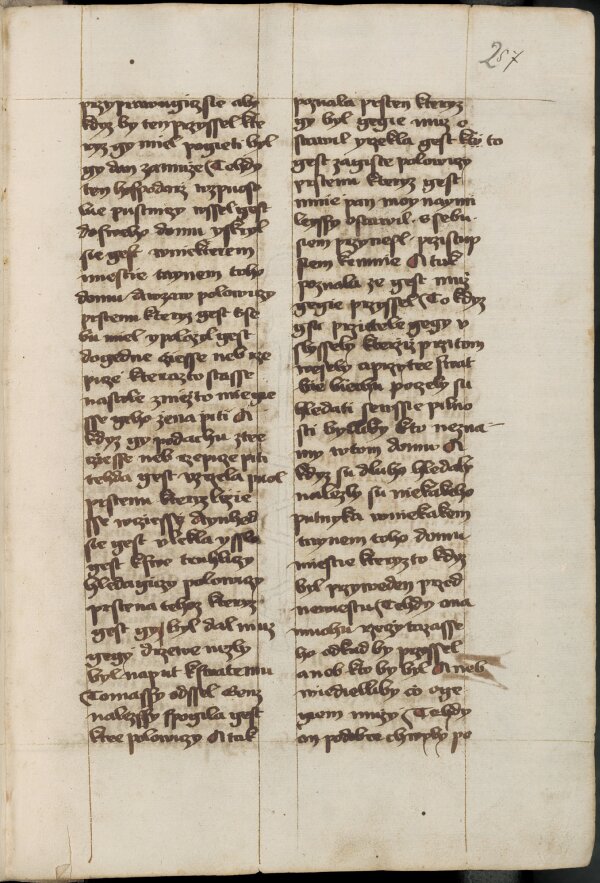 287
przyprawugiczsie aby
kdyz by ten przyssel kte
ryz gy miel pogieti byl
gy dan zamuze Tehdy
ten hospodarz wzpuoso
bie pustiniczy ussel gest
dosweho domu yskryl
sie gest wniekterem
miestie taynem toho
domu Awzaw polowiczy
prstenu kteryz gest tise
bu miel ypolozil gest
dogedne cziesse neb rze
pize kterazto stasse
nastole zniezto miegie
sse geho zena piti A
kdyz gy podachu ztee
cziesse neb rzepize piti
tehda gest uzrzela puol
prstenu kteryz lezie
sse wcziessy Aynhed
sie gest ulekla yssla
gest kstwe truhliczy
hledagiczy polowiczy
prstena tehoz kteryz
gest gy byl dal muz
gegy drzewe nizly
byl naput kswatemu
Tomassy odssel Genz
nalezssy spogila gest
ktee polowiczy A tak
poznala prsten kteryz
gy byl gegie muz o
stawil yrzekla gest kto to
gest zagiste polowiczy
prstenu kteryz gest
mnie pan moy naymi
leyssy ostawil s sebu
sem przynesl przistup
sem kemnie A tak
poznala ze gest muz
gegie przyssel To kdyz
gsu przietele gegy u
slyssely kterziz przitom
wesely aprzytee swat
bie biechu poczely su
hledati senssie pilno
sti bylliby kto nezna-
my wtom domu A
kdyz su dluho hledaly
nalezly su niekakeho
putnyka wniekakem
taynem toho domu
miestie kteryzto kdyz
byl przyweden przed
newiestu Tehdy ona
muchu rzeczy tazasse
ho odkad by przyssel
aneb kto by byl A neb
wiedielliby co oge
giem muzy Tehdy
on podobee chwyly po